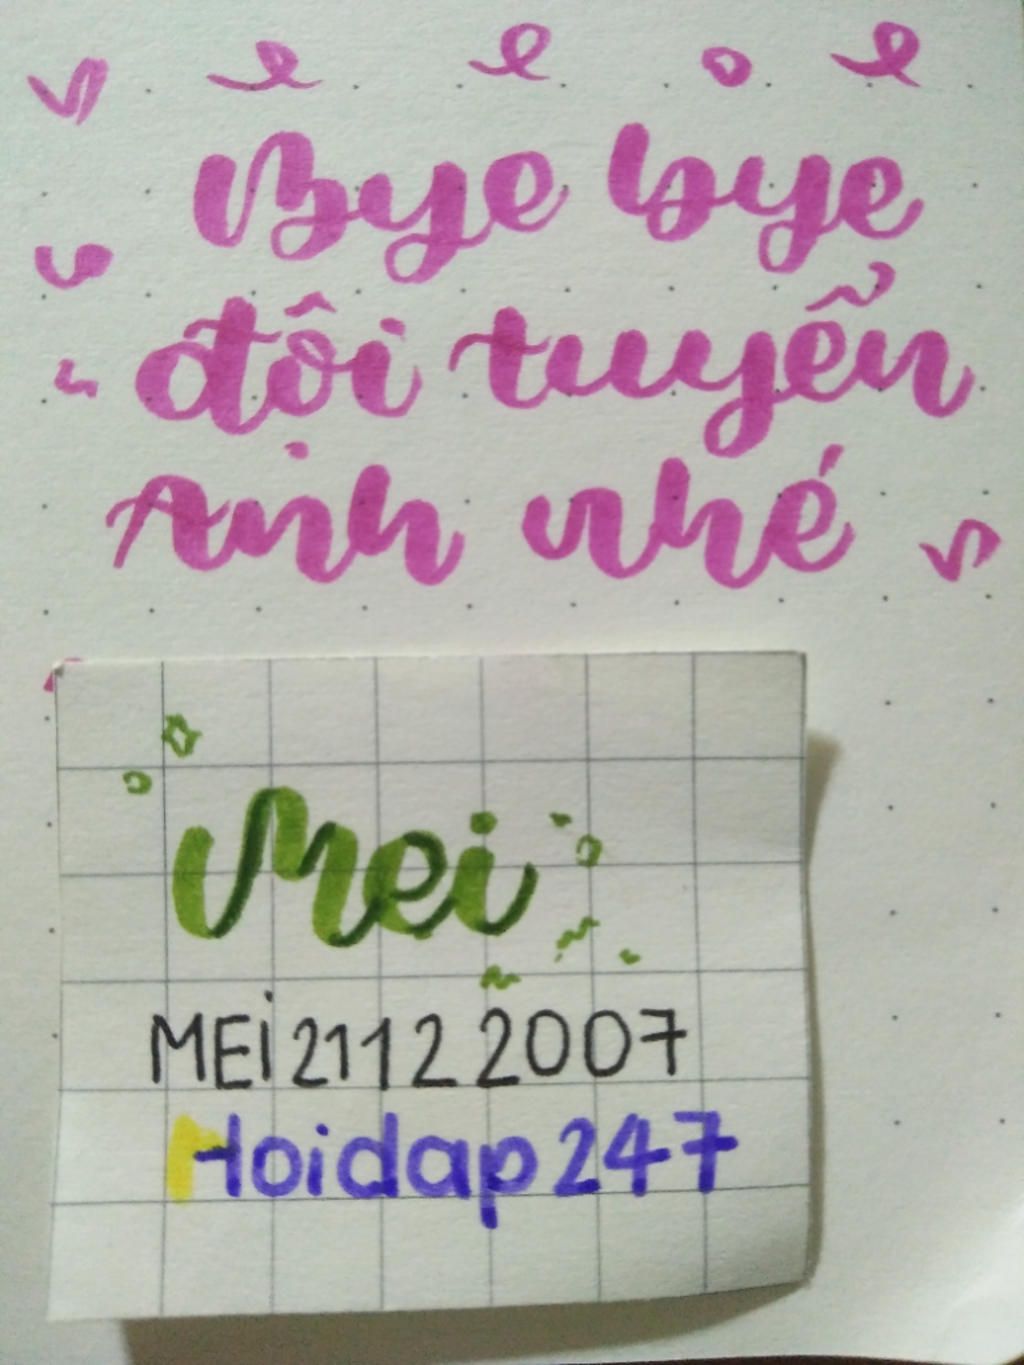 Bye bye
đội tuyển
Anh nhé
Mei
MEi21122007
Hoidap247